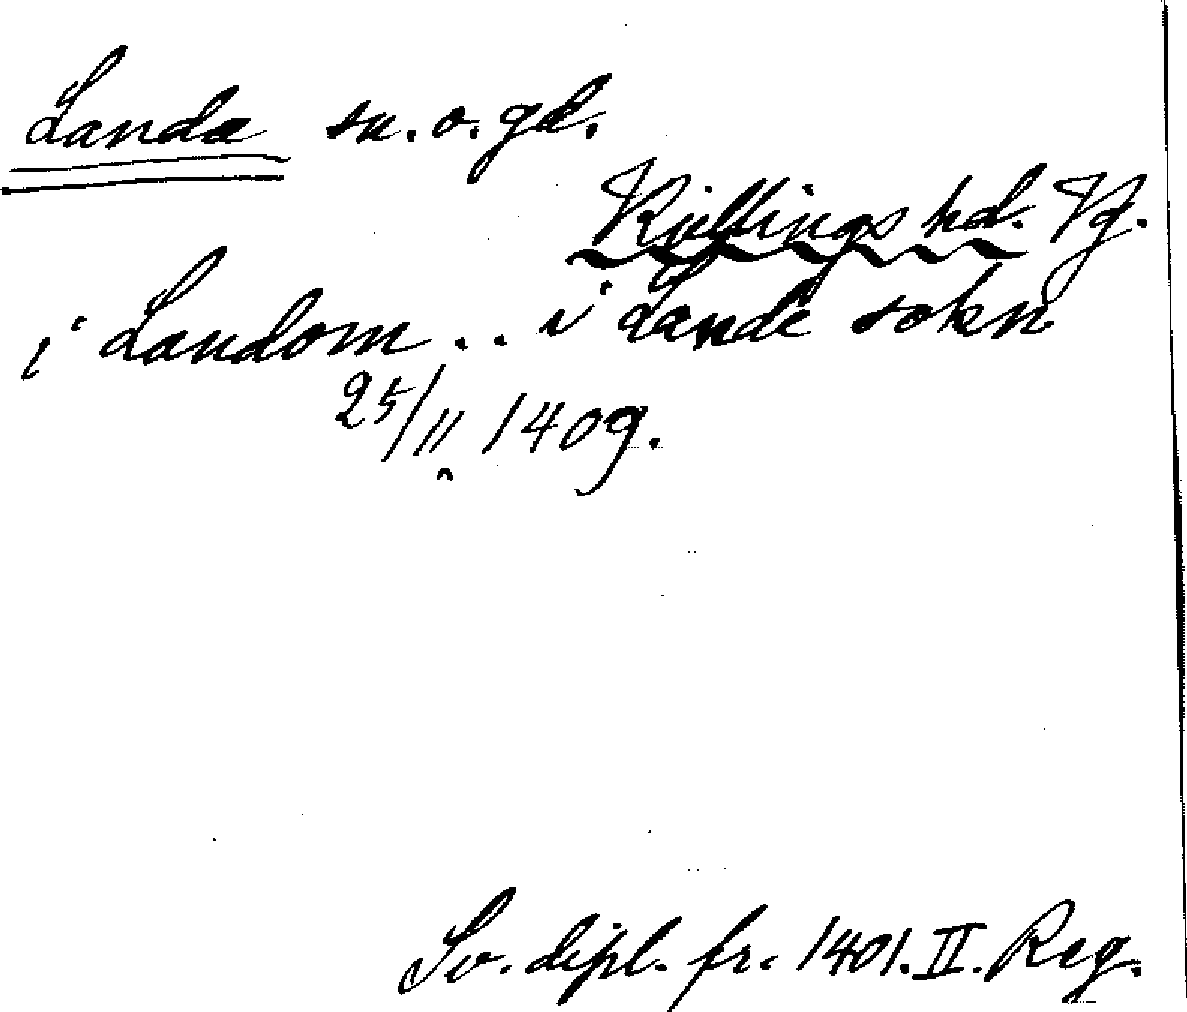 Landa sn. o. gd.
Kullings hd. Vg.
i Landom .. i Lande sokn
25/11 1409.
Sv. dipl. fr. 1401. II. Reg.